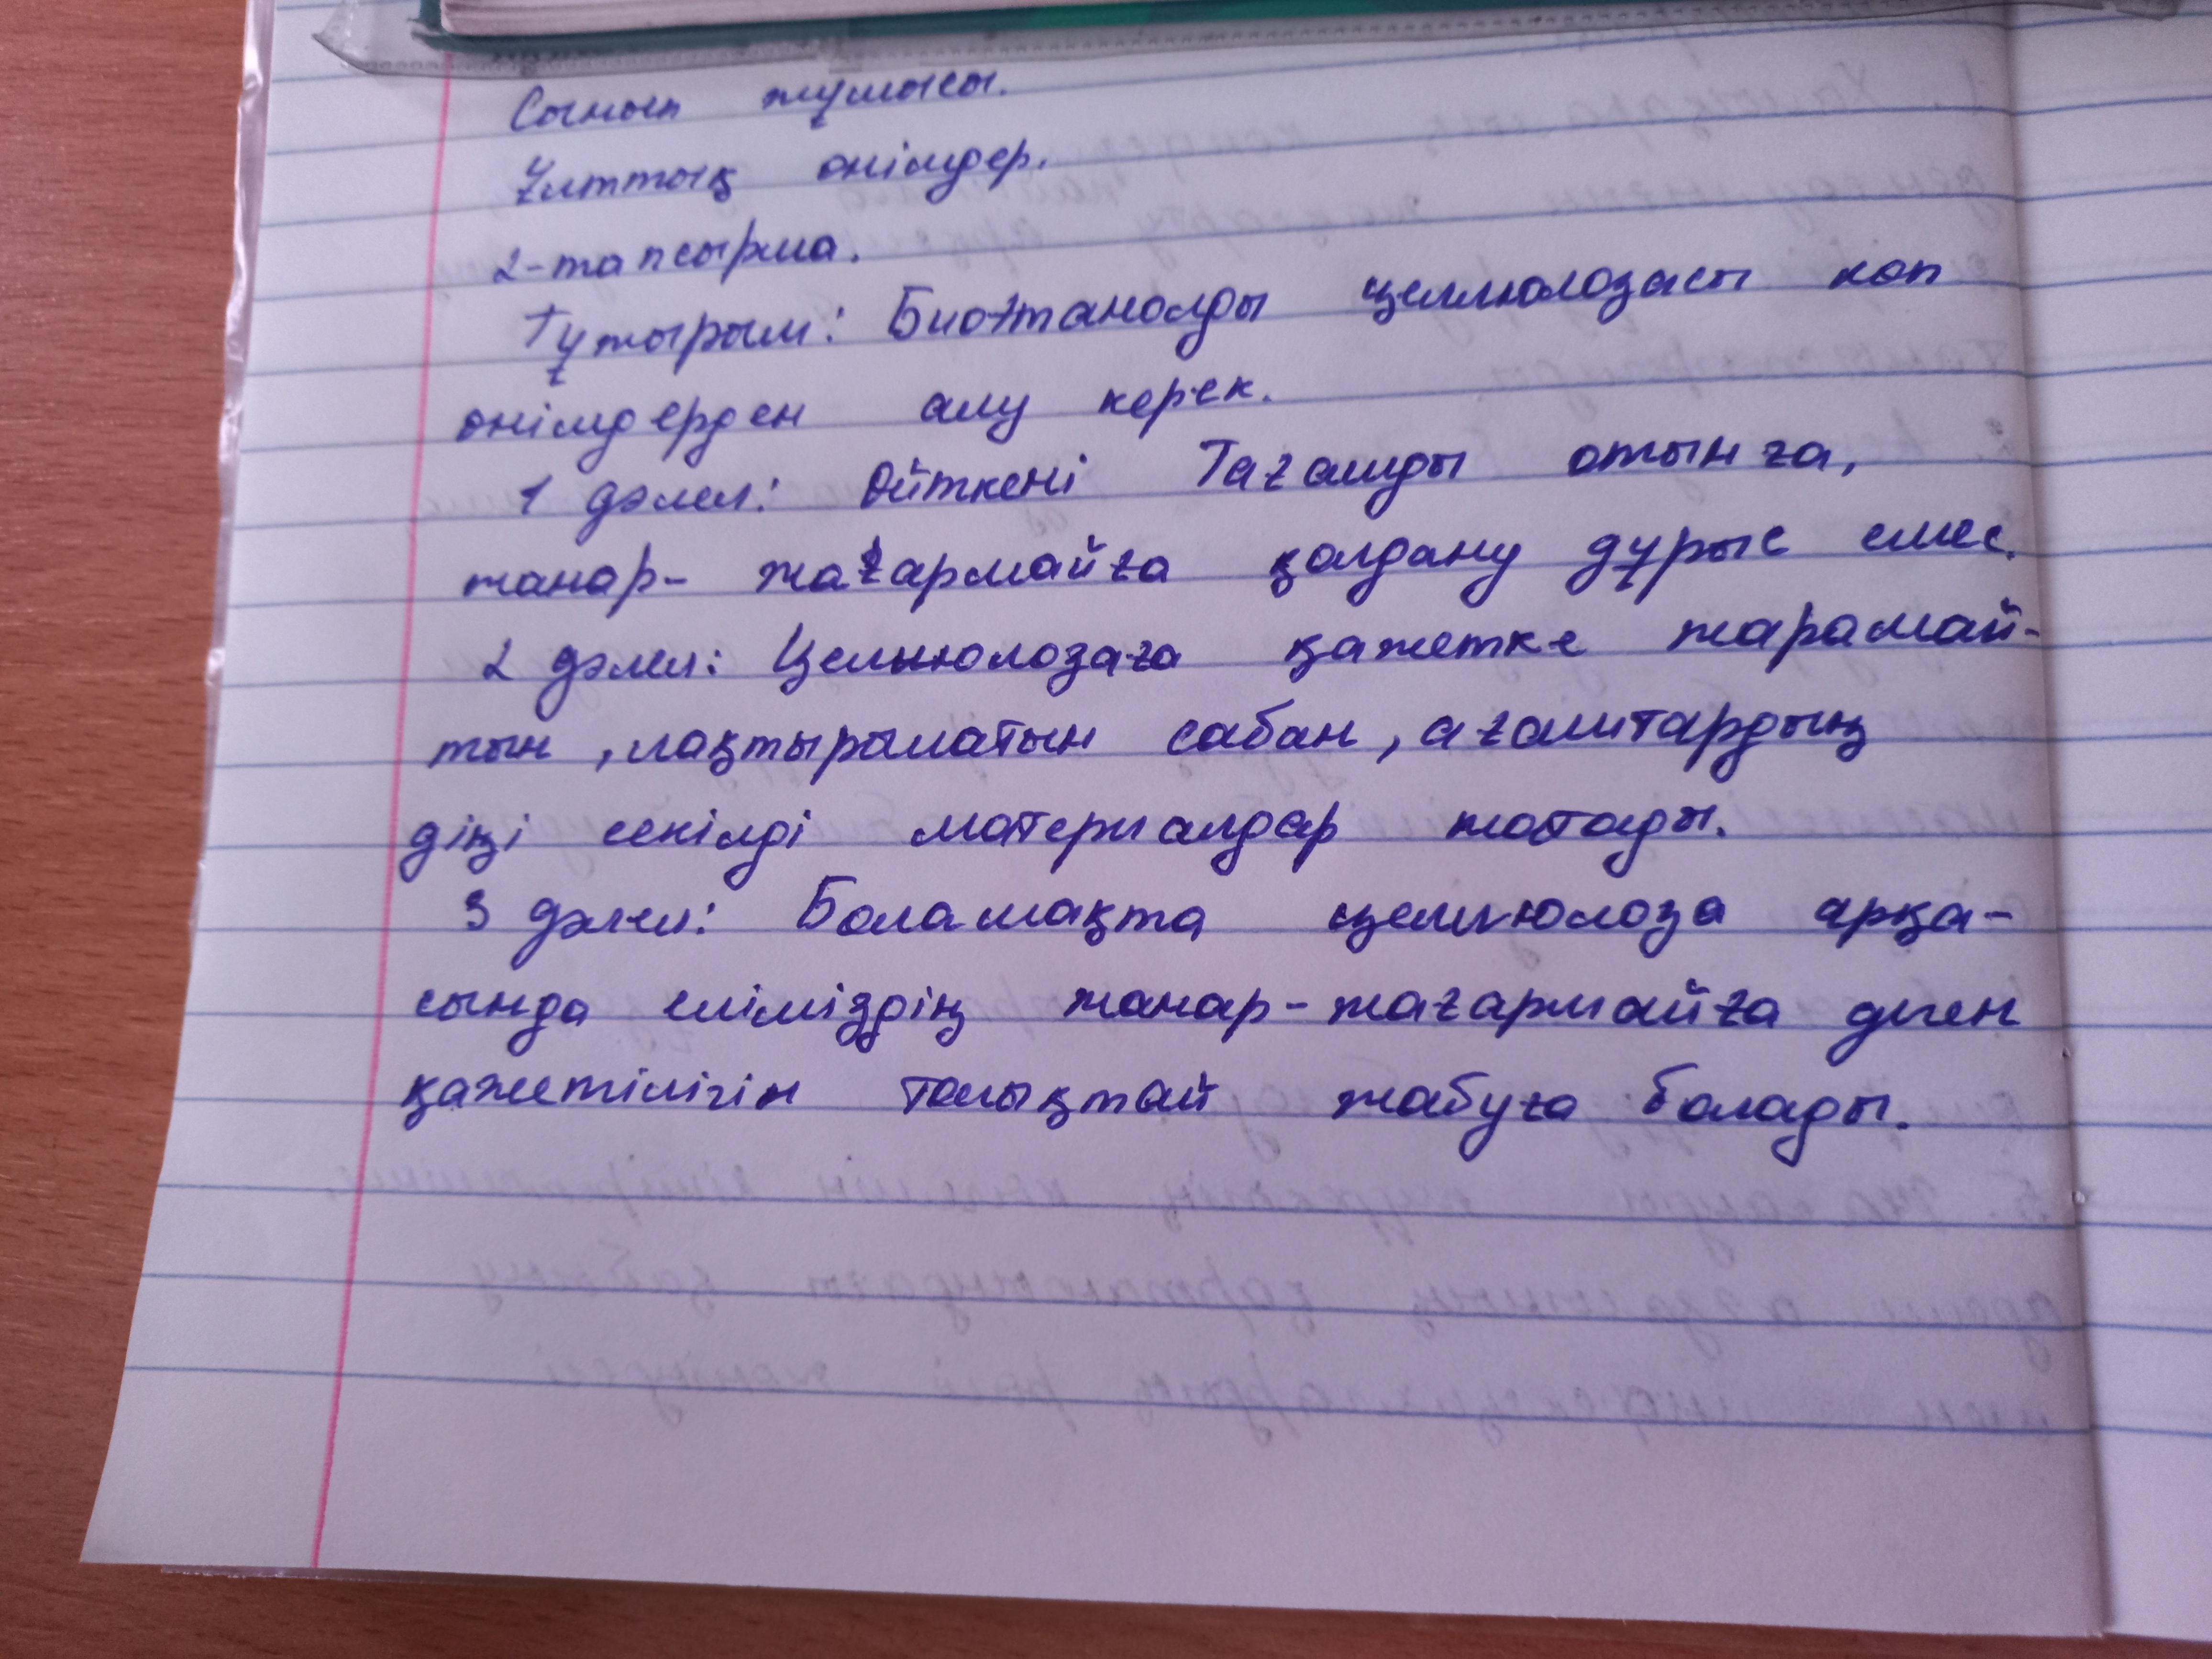 Сынып жұмысы.
Ұлттық өнімдер.
2-тапсырма.
Тұжырым: Биоэтанолды целлюлозасы көп
өнімдерден алу керек.
1 дәлел: Өйткені Тағамды отынға,
жанар- жағармайға қолдану дұрыс емес.
2 дәлел: Целлюлозаға қажетке жарамай-
тын, лақтырылатын сабан, ағаштардың
діңі секілді материалдар жатады.
3 дәлел: Болашақта целлюлоза арқа-
сында еліміздің жанар-жағармайға деген
қажетілігін толықтай жабуға болады.